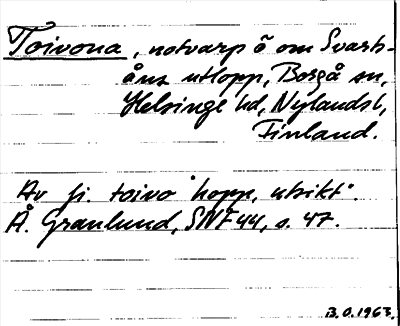 Toivona, notvarp ö om Svart-
åns utlopp, Borgå sn,
Helsinge hd, Nylandsl,
Finland.
Av fi. toivo "hopp, utsikt".
Å. Granlund, SNF 44, s. 47.
B.O.1963.